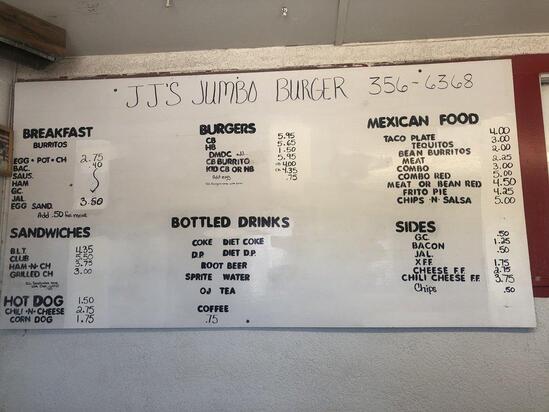 JJ'S JUMBO BURGER 356-6368
BREAKFAST
BURRITOS
EGG • POT • CH 2.75
BAC. .40
SAUS.
HAM
GC.
JAL.
EGG SAND. 3.50
Add .50 for more
SANDWICHES
B.L.T. 4.35
CLUB 5.50
HAM-N-CH 5.75
GRILLED CH 3.00
HOT DOG 1.50
CHILI-N-CHEESE 2.75
CORN DOG 1.75
BURGERS
CB 5.95
HB 5.65
DMDC add 1.50
CB BURRITO 5.95
KID CB OR HB 4.00 4.35
Add egg .75
BOTTLED DRINKS
COKE DIET COKE
D.P. DIET D.P.
ROOT BEER
SPRITE WATER
OJ TEA
COFFEE
.75
MEXICAN FOOD
TACO PLATE 4.00
TEQUITOS 3.00
BEAN BURRITOS 2.00
MEAT 2.25
COMBO 3.00
COMBO RED 5.00
MEAT OR BEAN RED 4.50
FRITO PIE 4.25
CHIPS-N-SALSA 5.00
SIDES
G.C. .50
BACON 1.25
JAL. .50
X F.F.
CHEESE F.F. 2.75
CHILI CHEESE F.F. 3.75
Chips .50